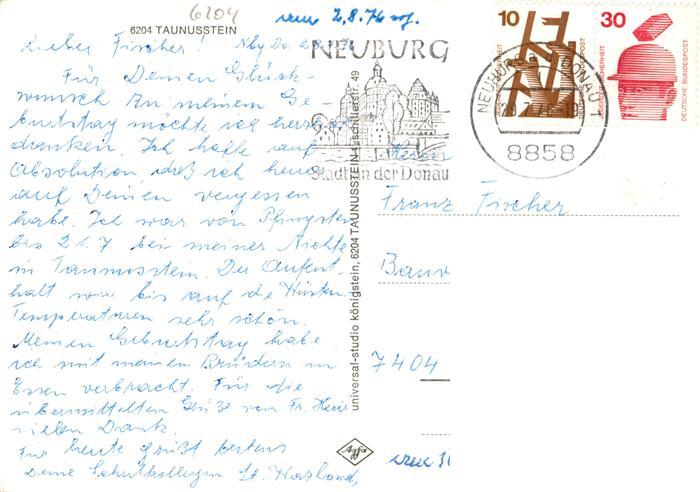 6204
6204 TAUNUSSTEIN
2.8.76
Lieber Fischer! Nbg Do.
Für Deinen Glück-
wunsch zu meinem Ge-
burtstag möchte ich herzl
danken. Ich hoffe auf
Absolution, daß ich heuer
auf Deinen vergessen
habe. Ich war von Pfingsten
bis 21.7 bei meiner Nichte
in Taunusstein. Der Aufent-
halt war bis auf die
Temperaturen sehr schön.
Meinen Geburtstag habe
ich mit meinen Brüdern in
Essen verbracht. Für die
übermittelten Grüße von Fr.
vielen Dank.
Für heute grüßt bestens
Deine Schulkollegin
universal-studio königstein, 6204 TAUNUSSTEIN 1, schillerstr. 49
Agfa
NEUBURG
Stadt an der Donau
NEUBURG DONAU 1
8858
10
DEUTSCHE BUNDESPOST
30
DEUTSCHE BUNDESPOST
Herrn
Franz Fischer
7404